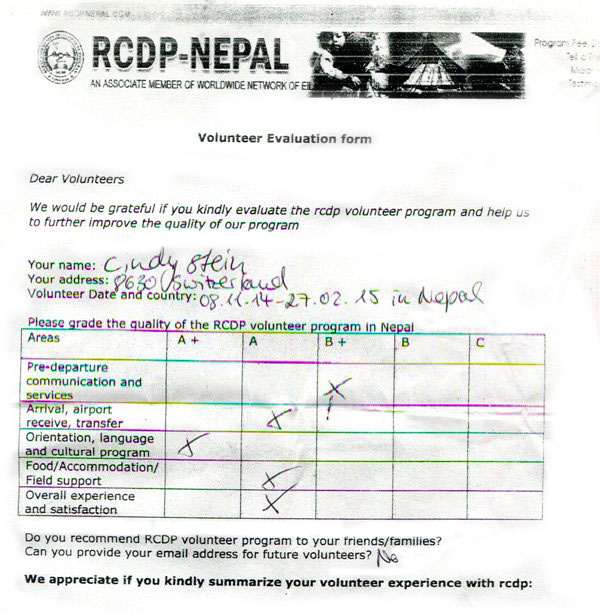 WWW.RCDPNEPAL.COM
RCDP-NEPAL
AN ASSOCIATE MEMBER OF WORLDWIDE NETWORK OF
Program Fee
Volunteer Evaluation form
Dear Volunteers
We would be grateful if you kindly evaluate the rcdp volunteer program and help us
to further improve the quality of our program
Your name: Cindy Stein
Your address: 8630 / Switzerland
Volunteer Date and country: 08.11.14-27.02.15 in Nepal
Please grade the quality of the RCDP volunteer program in Nepal
Areas A + A B + B C
Pre-departure
communication and
services X
Arrival, airport
receive, transfer X !
Orientation, language
and cultural program X
Food/Accommodation/
Field support X
Overall experience
and satisfaction X
Do you recommend RCDP volunteer program to your friends/families?
Can you provide your email address for future volunteers? No
We appreciate if you kindly summarize your volunteer experience with rcdp: